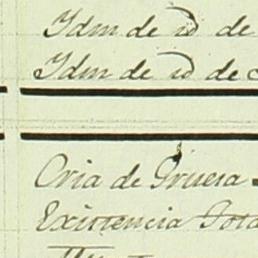 Idm de id de
Idm de id de
Cria de Gruesa
Existencia Tota